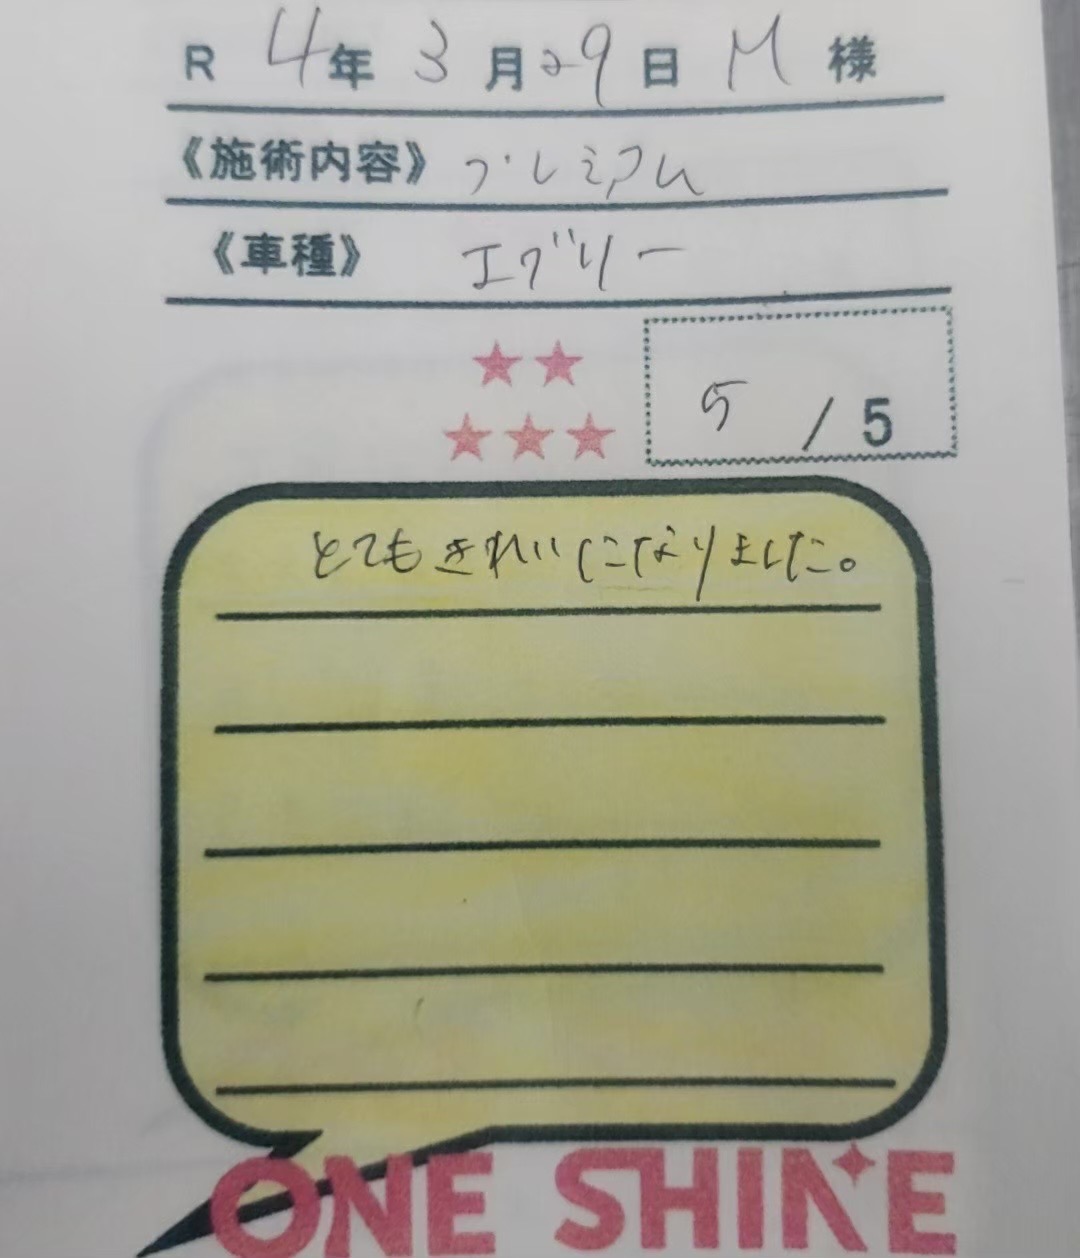 R 4年 3月29日 M 様
《施術内容》 プレミアム
《車種》 エブリー
5 / 5
とてもきれいになりました。
ONE SHINE